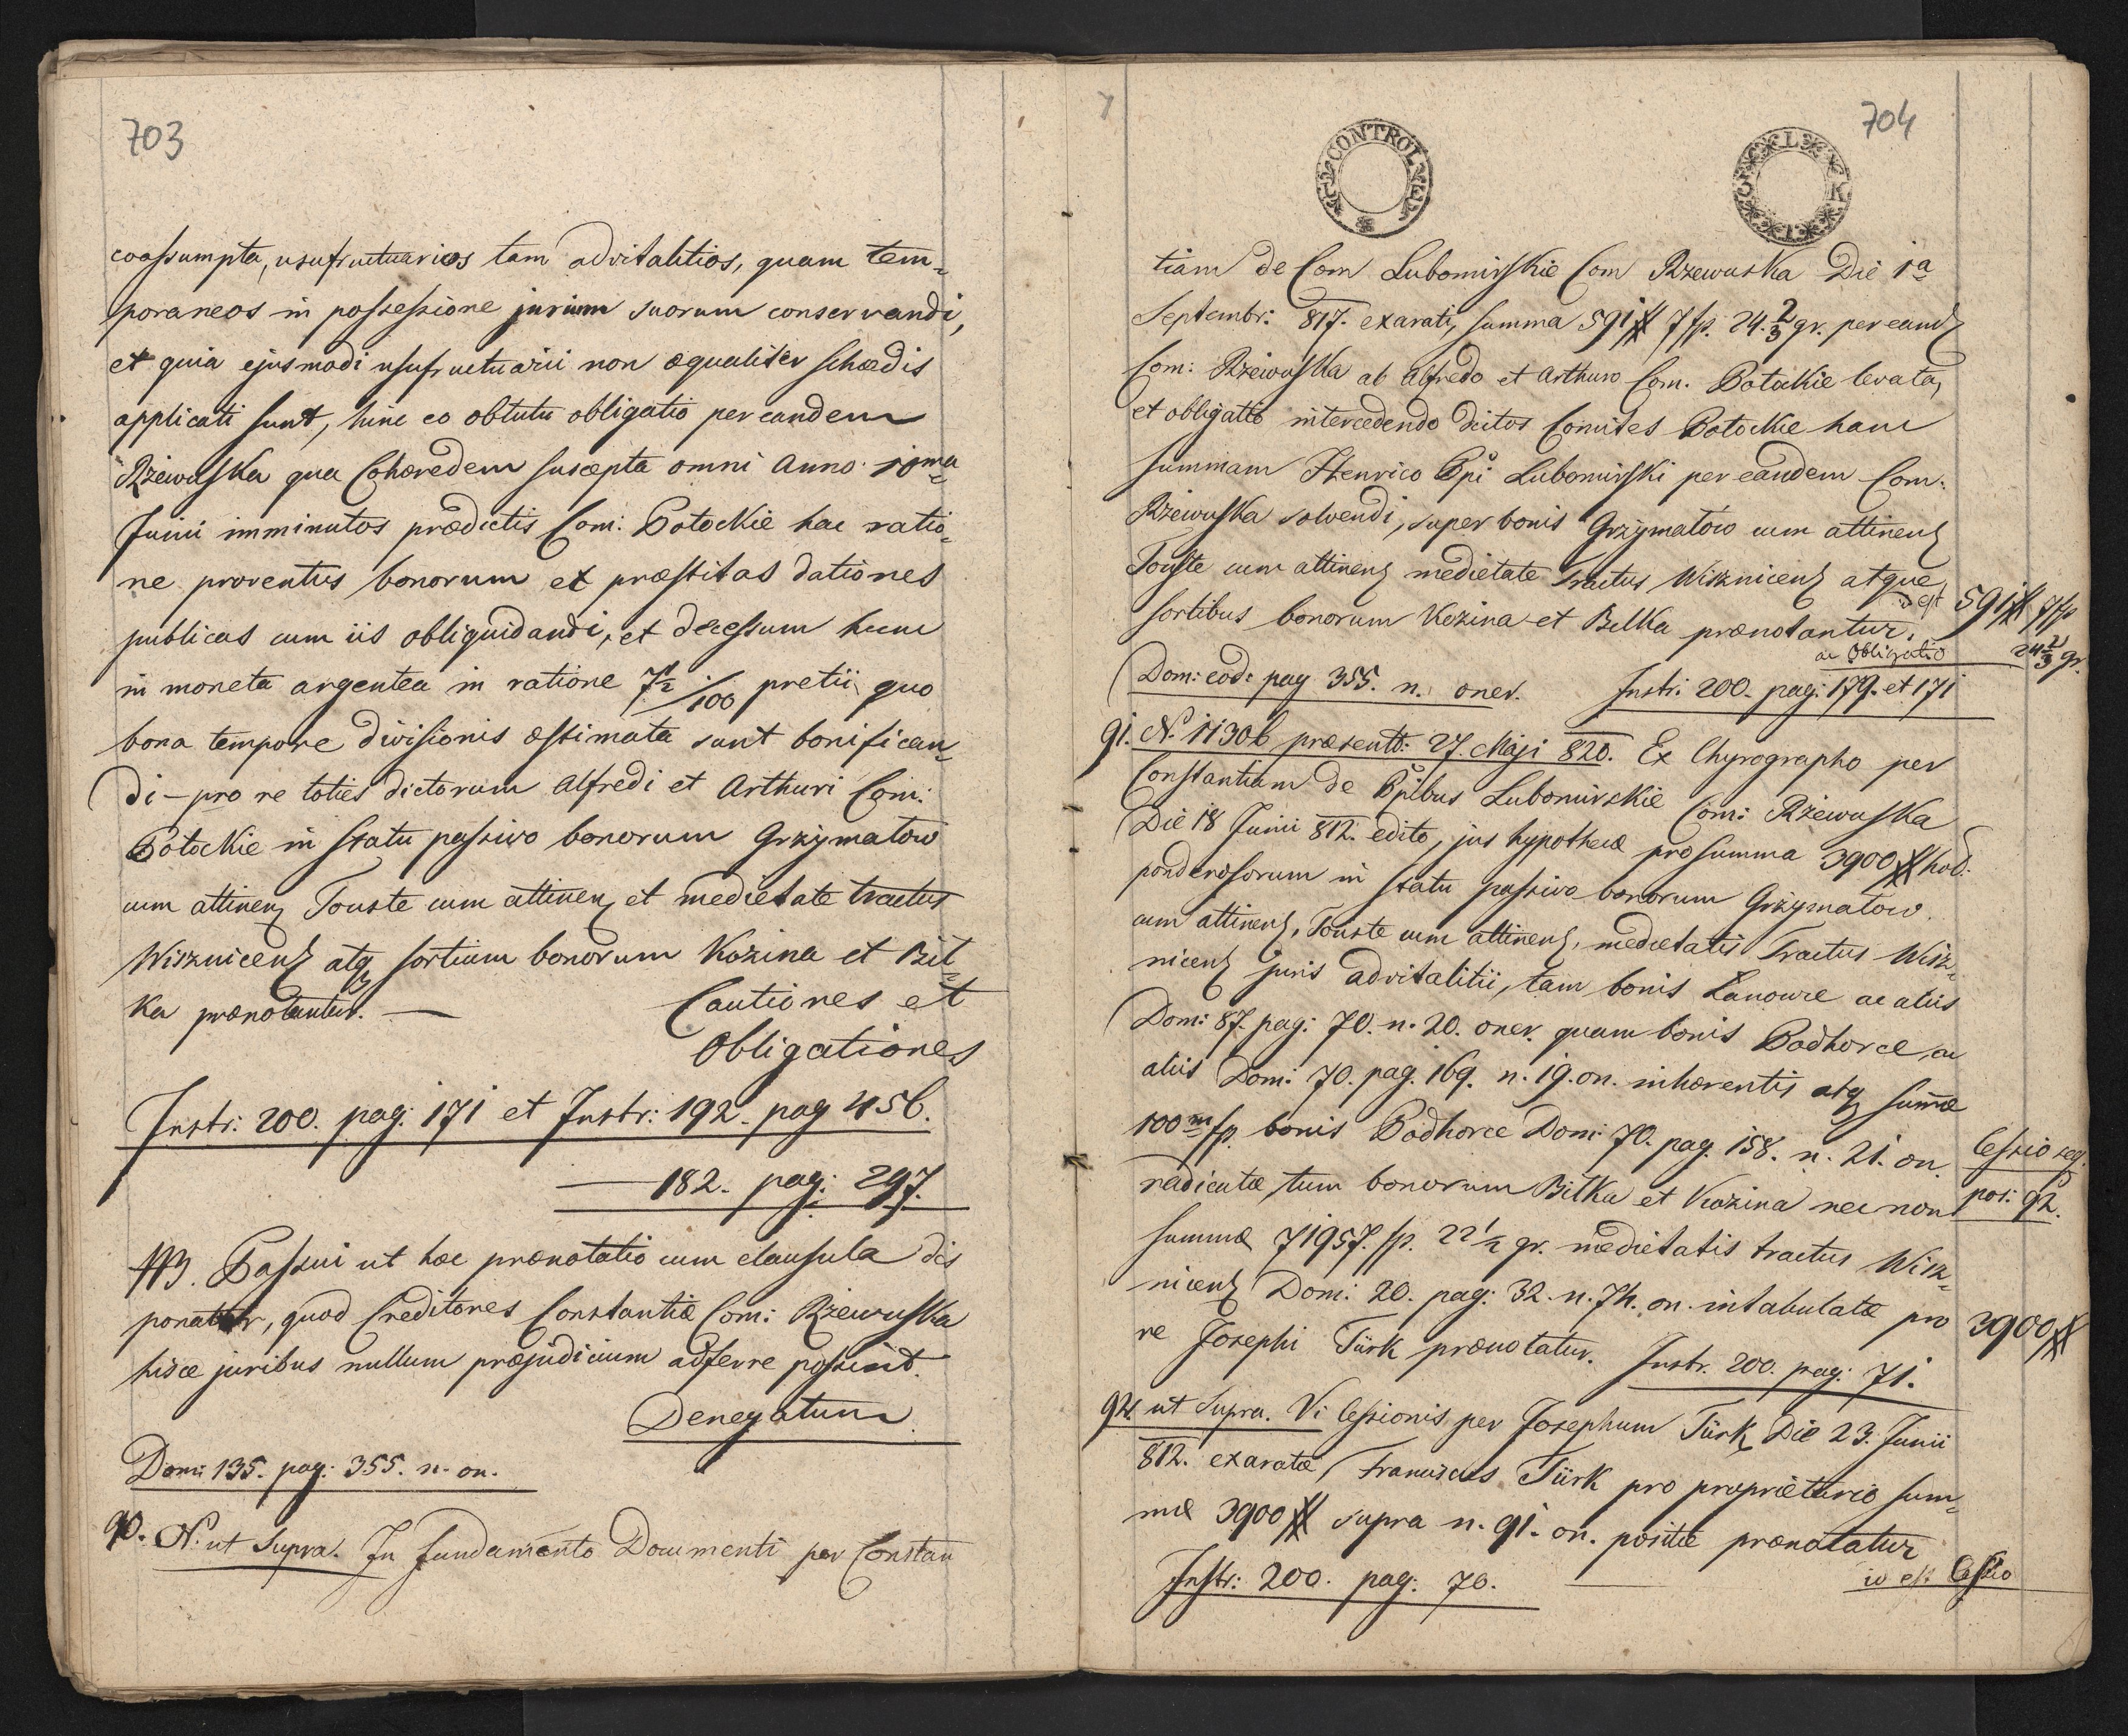 703
coassumpta, usufructuarios tam advitalitios, quam tem=
poraneos in possessione jurium suorum conservandi,
et quia ejusmodi usufructuarii non æqualiter schædis
applicati sunt, hinc eo obtutu obligatio per eandem
Rżewuska qua Cohæredem suscepta omni Anno 10ma
Junii imminutos prædictis Com: Potockie hac ratio=
ne proventus bonorum et præstitas dationes
publicas cum iis obliquidandi, et decessum hunc
in moneta argentea in ratione 7½/100 pretii quo
bona tempore divisionis æstimata sunt bonifican=
di – pro re toties dictorum Alfredi et Arthuri Com:
Potockie in statu passivo bonorum Grzymałow
cum attinen Touste cum attinen et medietate tractus
Wisznicens atq sortium bonorum Kozina et Bił=
ka prænotantur. — Cautiones et
Obligationes
Instr: 200. pag: 171 et Instr: 192. pag 456.
— 182. pag: 297.
Passui ut hæc prænotatio cum clausula dis
ponatur, quod Creditores Constantiæ Com: Rżewuska
hisce juribus nullum præjudicium adferre possint.
Denegatum.
Dom: 135. pag: 355. n. on.
90. N. ut Supra. In fundamento Documenti per Constan
704
CONTROL
tiam de Com Lubomirskie Com Rzewuska Die 1a
Septembr: 817. exarati, summa 591 # 7 fp. 24 2/3 gr. per eand
Com: Rżewuska ab Alfredo et Arthuro Com. Potockie levata,
et obligatio intercedendo dictos Comites Potockie hanc
summam Henrico Ppi Lubomirski per eandem Com.
Rżewuska solvendi, super bonis Grzymałow cum attinens
Touste cum attinens medietate Tractus Wisznicens atque
sortibus bonorum Kozina et Bilka prænotantur. id est
591 # 7 fp
24 2/3 gr.
ac Obligatio
Dom: eod: pag 355. n. oner. Instr: 200. pag: 179. et 171
91. N. 11306 præsentt: 27. Maji 820. Ex Chyrographo per
Constantiam de Ppibus Lubomirskie Com: Rżewuska
Die 18 Junii 812. edito, jus hypothecæ pro summa 3900 # hol.
ponderosorum in statu passivo bonorum Grzymałow
cum attinens, Touste cum attinens, medietatis Tractus Wisz=
nicens juris advitalitii, tam bonis Łanowce ac aliis
Dom: 87. pag: 70. n. 20. oner. quam bonis Podhorce, ac
aliis Dom: 70. pag. 169. n. 19. on. inhærentis atq summæ
100 m fp. bonis Podhorce Dom: 70. pag. 158. n. 21. on.
Cessio seq.
pos: 92.
radicatæ, tum bonorum Bitka et Kozina nec non
summæ 71957. fp. 22 1/2 gr. medietatis tractus Wisz=
nicens Dom: 20. pag: 32. n. 74. on. intabulatæ pro
3900 #
re Josephi Türk prænotatur. Instr. 200. pag: 71.
92. ut Supra. Vi Cessionis per Josephum Türk Die 23. Junii
812. exaratæ, Franciscus Türk pro proprietario sum=
mæ 3900 # supra n. 91. on. positæ prænotatur
Instr: 200. pag: 70. — id est Cessio